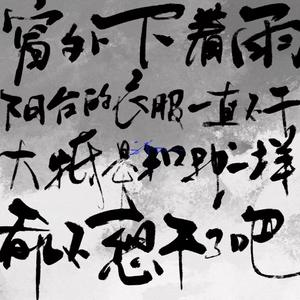 窗外下着雨
阳台的衣服一直不干
大概是和我一样
都不想干了吧